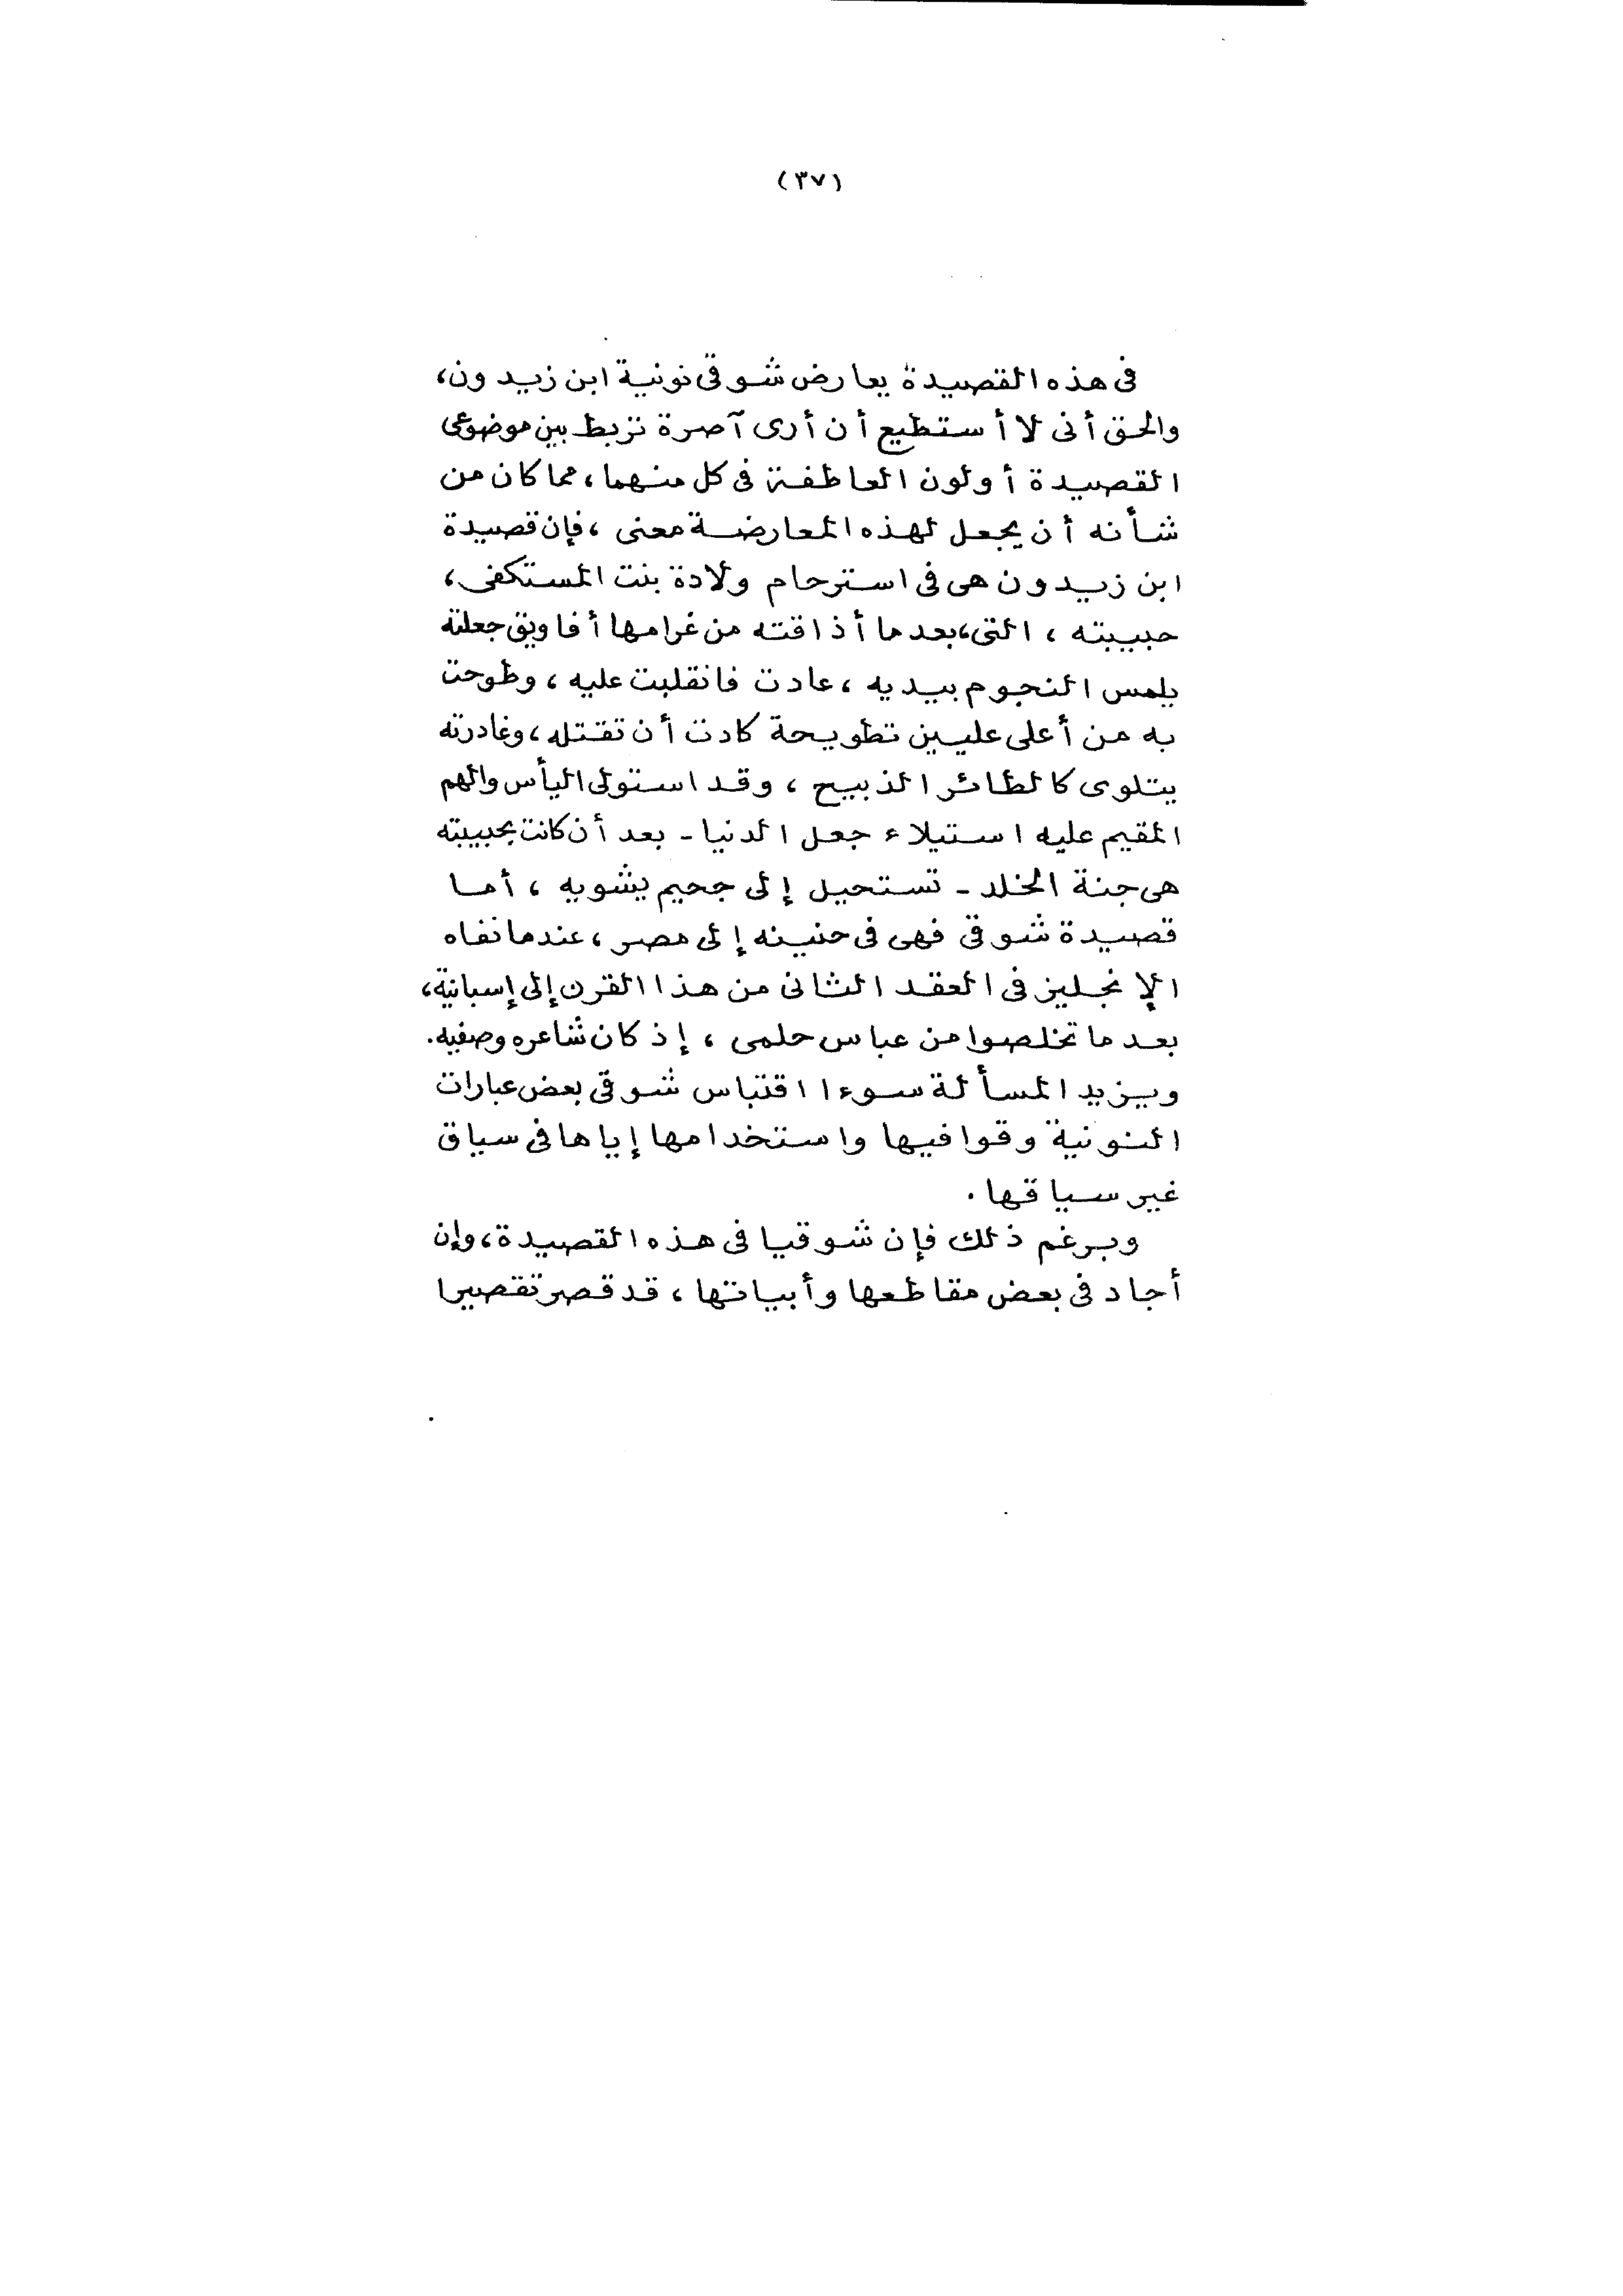 (٣٧)
فى هذه القصيدة يعارض شوقى نونية ابن زيدون،
والحق أنى لا أستطيع أن أرى آصرة تربط بين موضوعى
القصيدة أو لون العاطفة فى كل منهما، مما كان من
شأنه أن يجعل لهذه المعارضة معنى، فإن قصيدة
ابن زيدون هى فى استرحام ولادة بنت المستكفى،
حبيبته، التى، بعدما أذاقته من غرامها أفاويق جعلته
يلمس النجوم بيديه، عادت فانقلبت عليه، وطوحت
به من أعلى عليين تطويحة كادت أن تقتله، وغادرته
يتلوى كالطائر الذبيح، وقد استولى اليأس والهم
المقيم عليه استيلاء جعل الدنيا - بعد أن كانت بحبيبته
هى جنة الخلد - تستحيل إلى جحيم يشويه، أما
قصيدة شوقى فهى فى حنينه إلى مصر، عندما نفاه
الإنجليز فى العقد الثانى من هذا القرن إلى إسبانية،
بعد ما تخلصوا من عباس حلمى، إذ كان شاعره وصفيه.
ويزيد المسألة سوءا اقتباس شوقى بعض عبارات
النونية وقوافيها واستخدامها إياها فى سياق
غير سياقها.
وبرغم ذلك فإن شوقيا فى هذه القصيدة، وإن
أجاد فى بعض مقاطعها وأبياتها، قد قصر تقصيرا